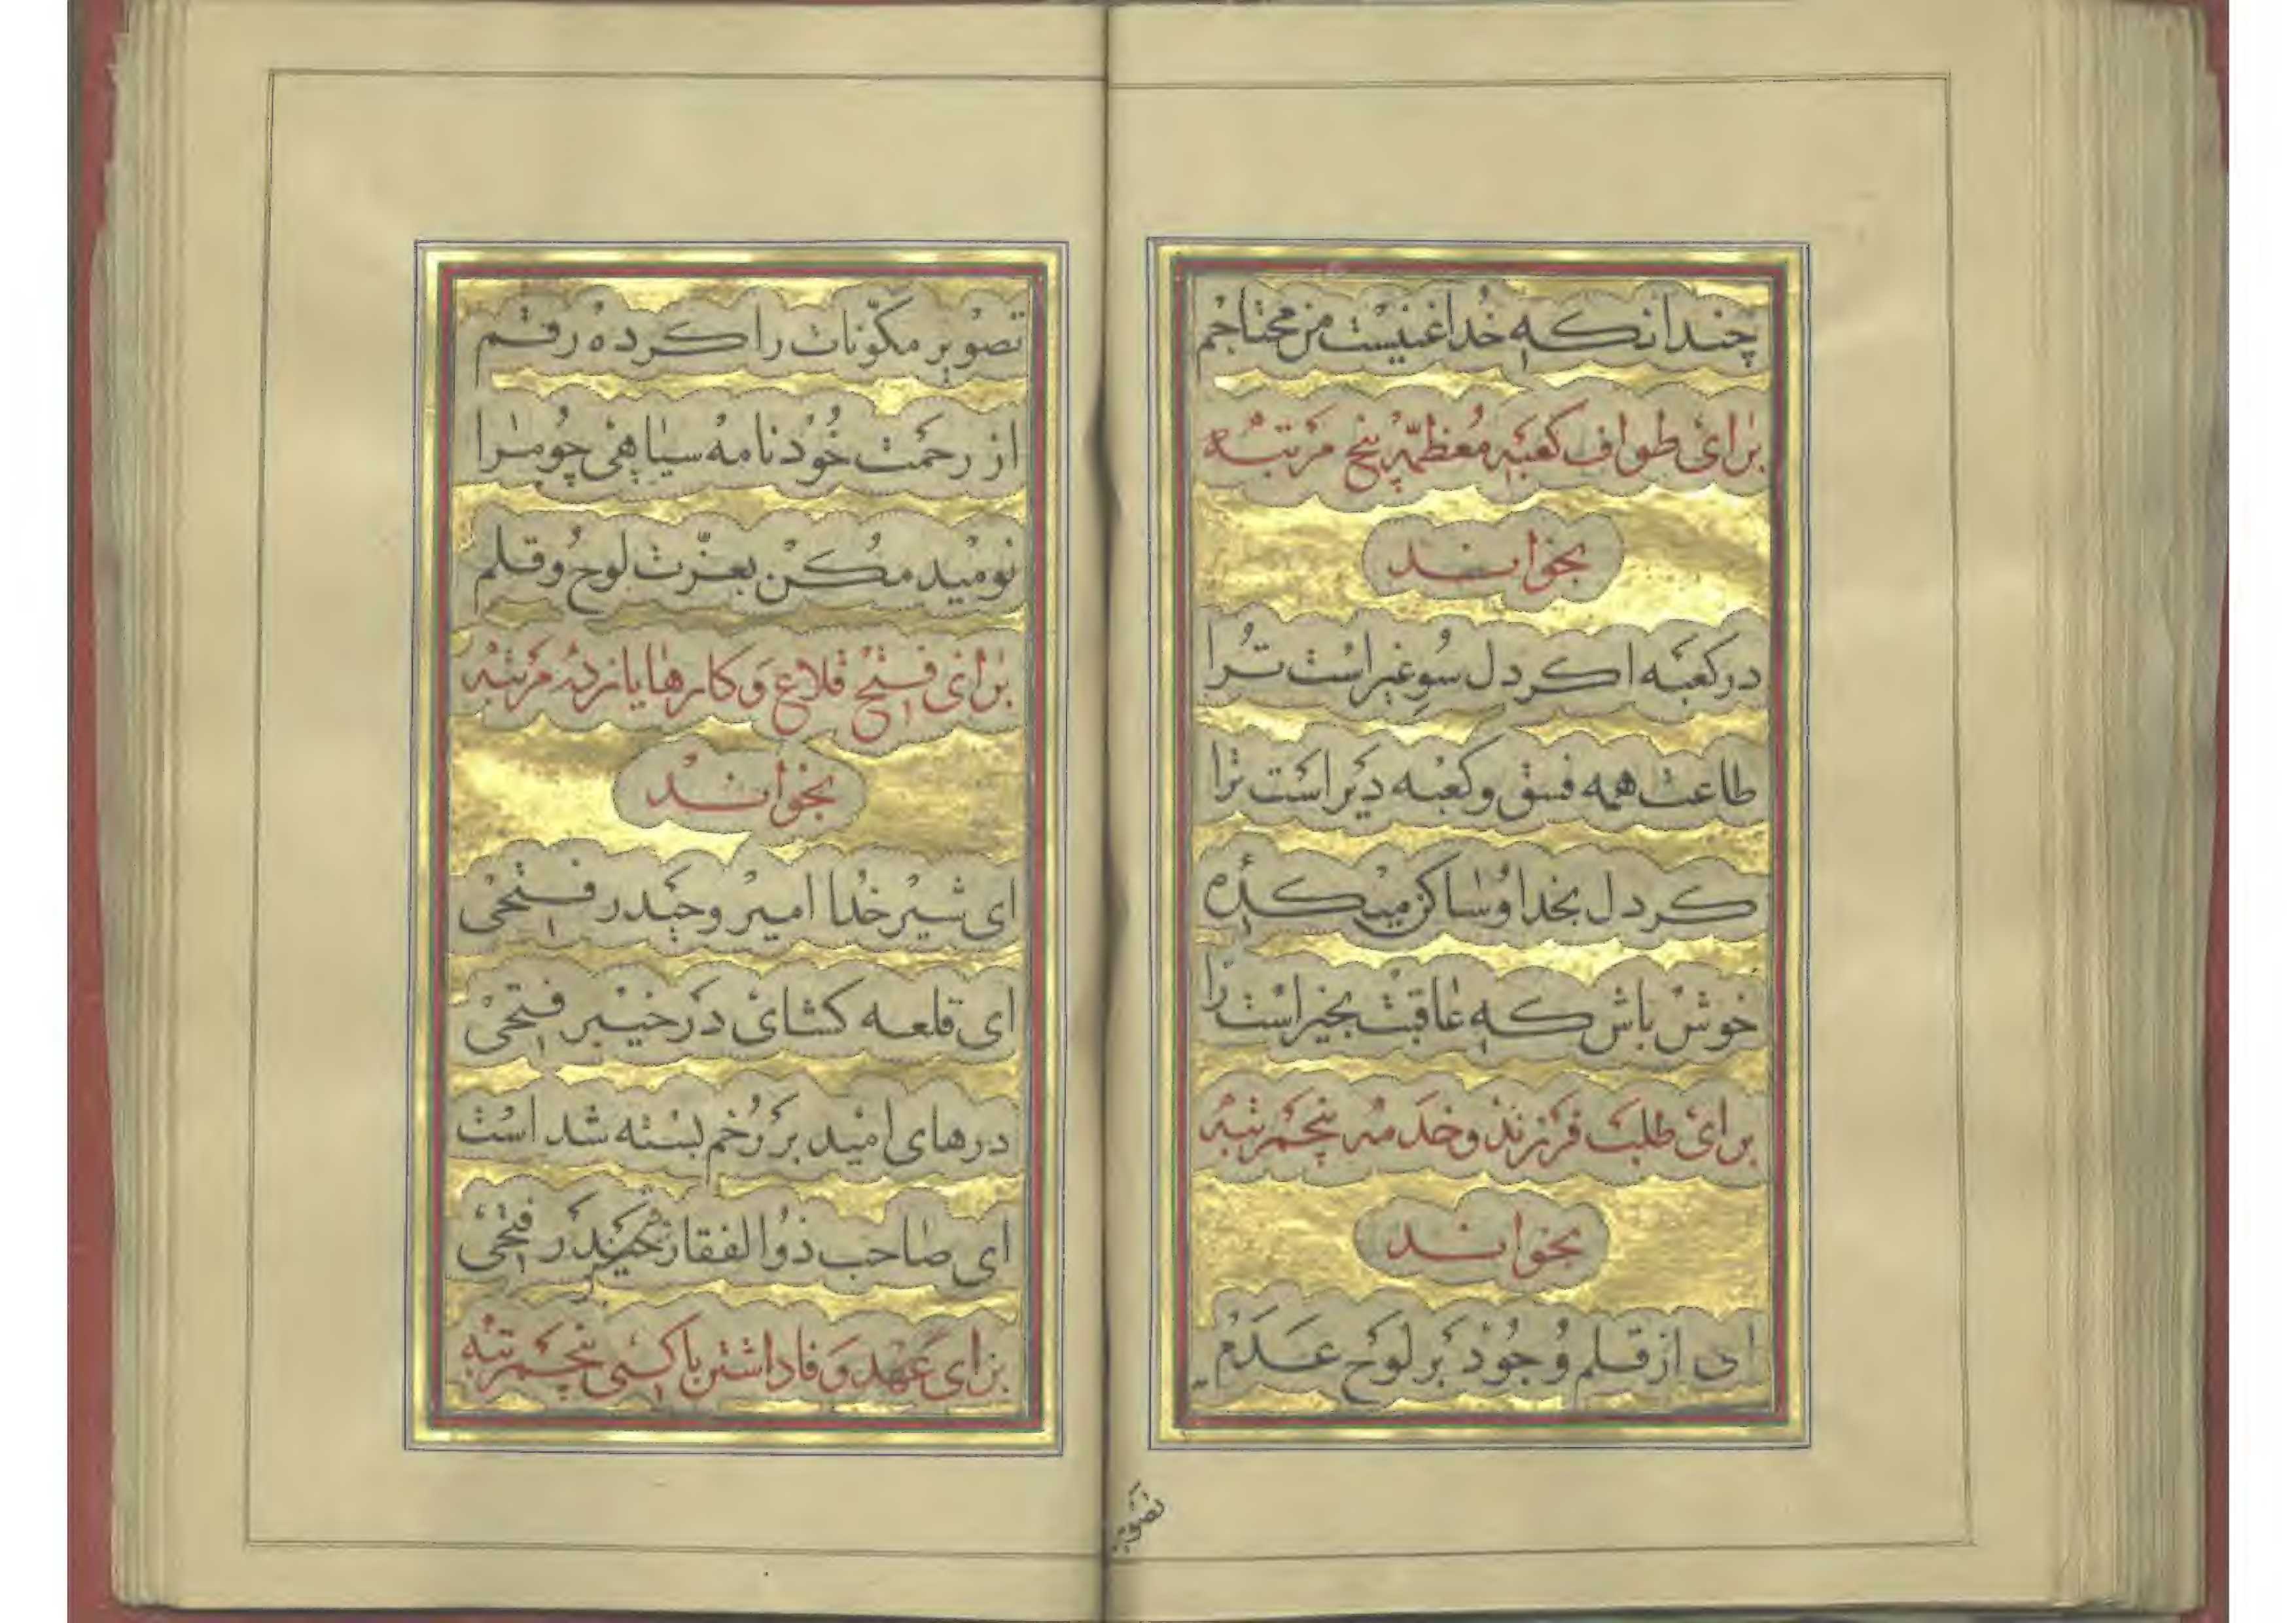 چندانکه خدا غنیست من محتاجم
برای طواف کعبه معظمه پنج مرتبه
بخواند
در کعبه اکر دل سو غیراست ترا
طاعت همه فسق و کعبه دیراست ترا
کر دل بخدا و ساکن میکدهٔ
خوش باش که عاقبت بخیراست ترا
برای طلب فرزند و خدمه پنجمرتبه
بخواند
ای از قلم وجود بر لوح عدم
تصویر
تصویر مکوّنات را کرده رقم
از رحمت خود نامه سیاهی چو مرا
نومید مکن بعزّت لوح و قلم
برای فتح قلاع و کارها یازده مرتبه
بخواند
ای شیر خدا امیر و حیدر فتحی
ای قلعه کشای در خیبر فتحی
درهای امید بر رخم بسته شد است
ای صاحب ذوالفقار حیدر فتحی
برای عهد وفا داشتن با کسی پنجمرتبه